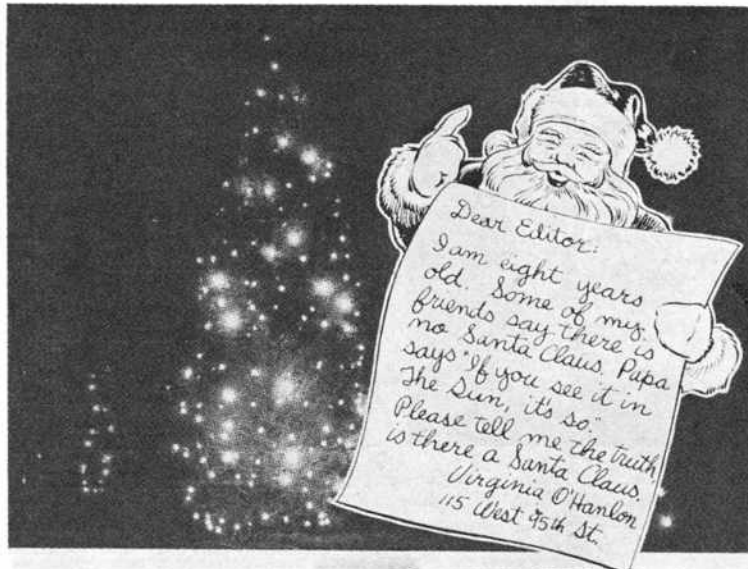 Dear Editor:
I am eight years
old. Some of my
friends say there is
no Santa Claus. Papa
says "If you see it in
The Sun, it's so."
Please tell me the truth,
is there a Santa Claus.
Virginia O'Hanlon
115 West 95th St.